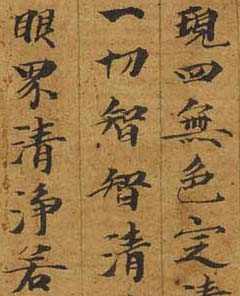 現四無色定清
一切智智清
眼界清淨若